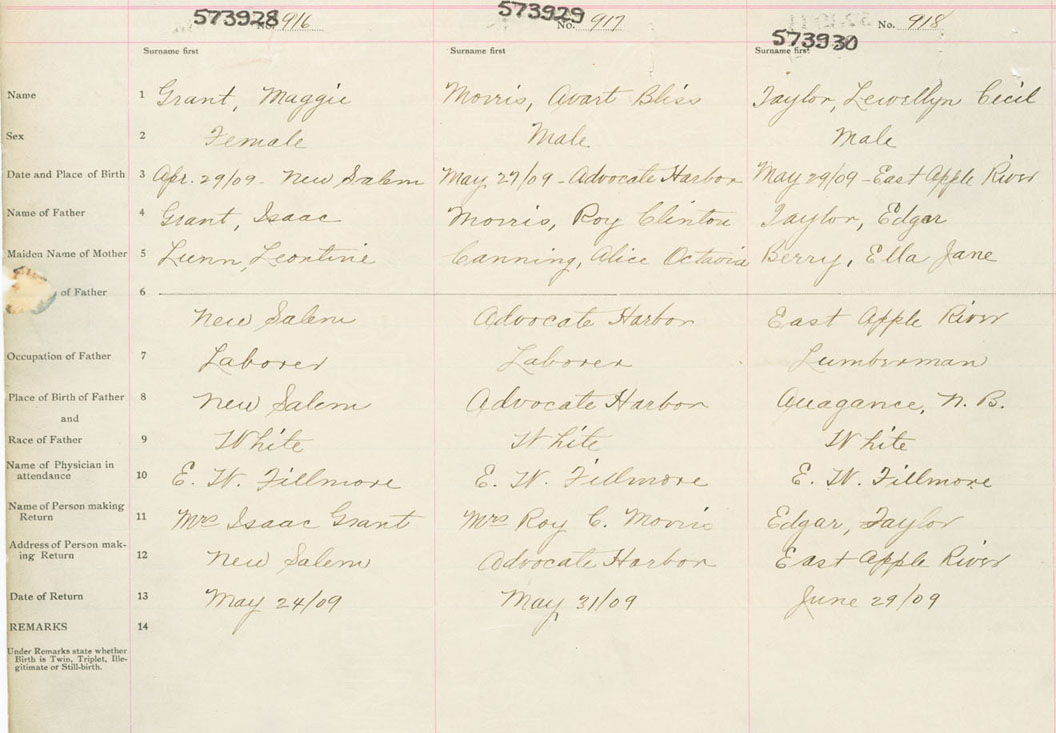 573928 573929 573930
No. 916 No. 917 No. 918
Surname first Surname first Surname first
Name 1 Grant, Maggie Morris, Avart Bliss Taylor, Lewellyn Cecil
Sex 2 Female Male Male
Date and Place of Birth 3 Apr. 29/09 - New Salem May 27/09 - Advocate Harbor May 29/09 - East Apple River
Name of Father 4 Grant, Isaac Morris, Roy Clinton Taylor, Edgar
Maiden Name of Mother 5 Lunn, Leontine Canning, Alice Octavia Berry, Ella Jane
of Father 6
New Salem Advocate Harbor East Apple River
Occupation of Father 7 Laborer Laborer Lumberman
Place of Birth of Father 8 New Salem Advocate Harbor Anagance, N. B.
and
Race of Father 9 White White White
Name of Physician in
attendance 10 E. W. Fillmore E. W. Fillmore E. W. Fillmore
Name of Person making
Return 11 Mrs Isaac Grant Mrs Roy C. Morris Edgar, Taylor
Address of Person mak-
ing Return 12 New Salem Advocate Harbor East Apple River
Date of Return 13 May 24/09 May 31/09 June 29/09
REMARKS 14
Under Remarks state whether
Birth is Twin, Triplet, Ille-
gitimate or Still-birth.